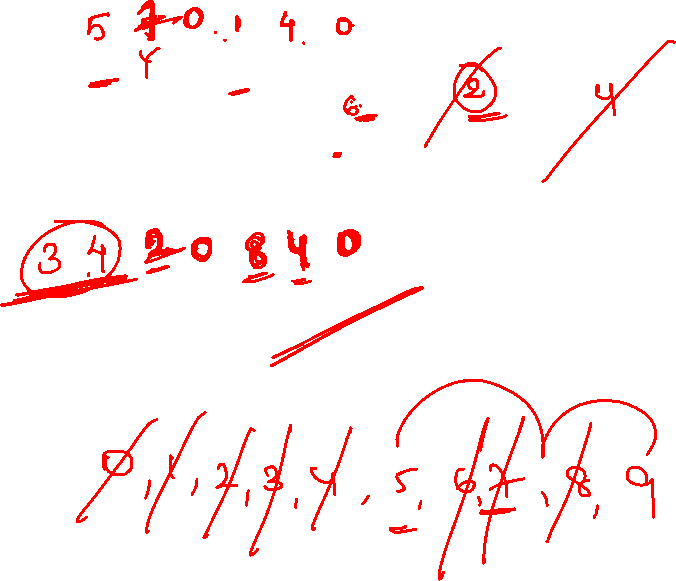 5 7 0 . 1 4 . 0
Y
6 2 4
3 4 2 0 8 4 0
0, 1, 2, 3, 4, 5, 6, 7, 8, 9